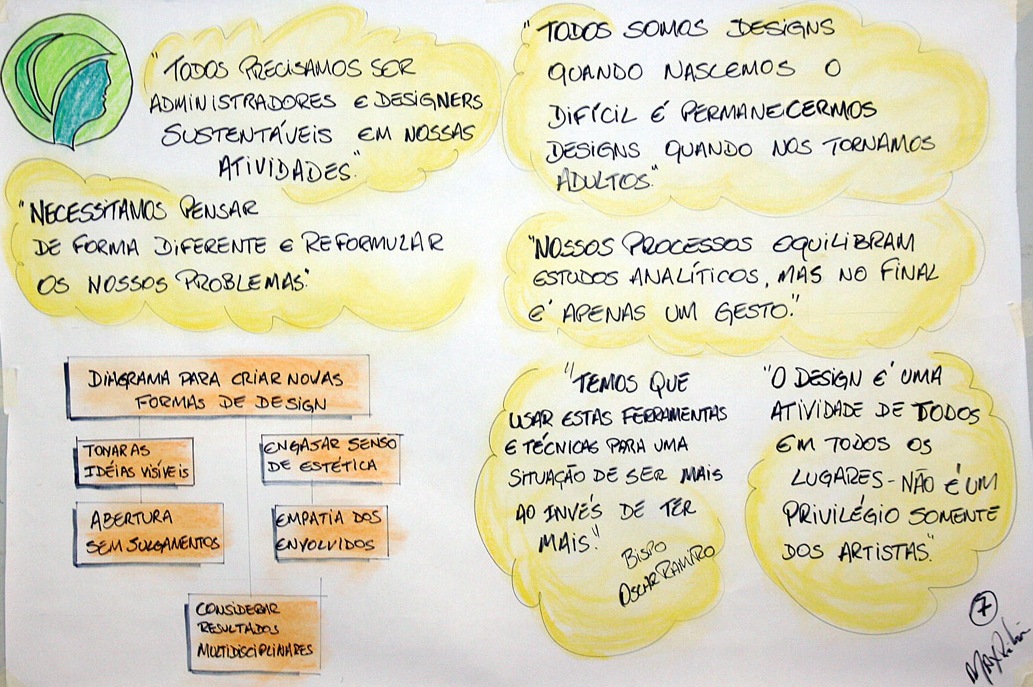 "TODOS PRECISAMOS SER
ADMINISTRADORES E DESIGNERS
SUSTENTÁVEIS EM NOSSAS
ATIVIDADES."
"NECESSITAMOS PENSAR
DE FORMA DIFERENTE E REFORMULAR
OS NOSSOS PROBLEMAS."
DIAGRAMA PARA CRIAR NOVAS
FORMAS DE DESIGN
TONAR AS
IDÉIAS VISÍVEIS
ENGAJAR SENSO
DE ESTÉTICA
ABERTURA
SEM JULGAMENTOS
EMPATIA DOS
ENVOLVIDOS
CONSIDERAR
RESULTADOS
MULTIDISCIPLINARES
"TODOS SOMOS DESIGNS
QUANDO NASCEMOS O
DIFÍCIL É PERMANECERMOS
DESIGNS QUANDO NOS TORNAMOS
ADULTOS."
"NOSSOS PROCESSOS EQUILIBRAM
ESTUDOS ANALÍTICOS, MAS NO FINAL
É APENAS UM GESTO."
"TEMOS QUE
USAR ESTAS FERRAMENTAS
E TÉCNICAS PARA UMA
SITUAÇÃO DE SER MAIS
AO INVÉS DE TER
MAIS."
BISPO
OSCAR RAMIRO
"O DESIGN É UMA
ATIVIDADE DE TODOS
EM TODOS OS
LUGARES - NÃO É UM
PRIVILÉGIO SOMENTE
DOS ARTISTAS."
7